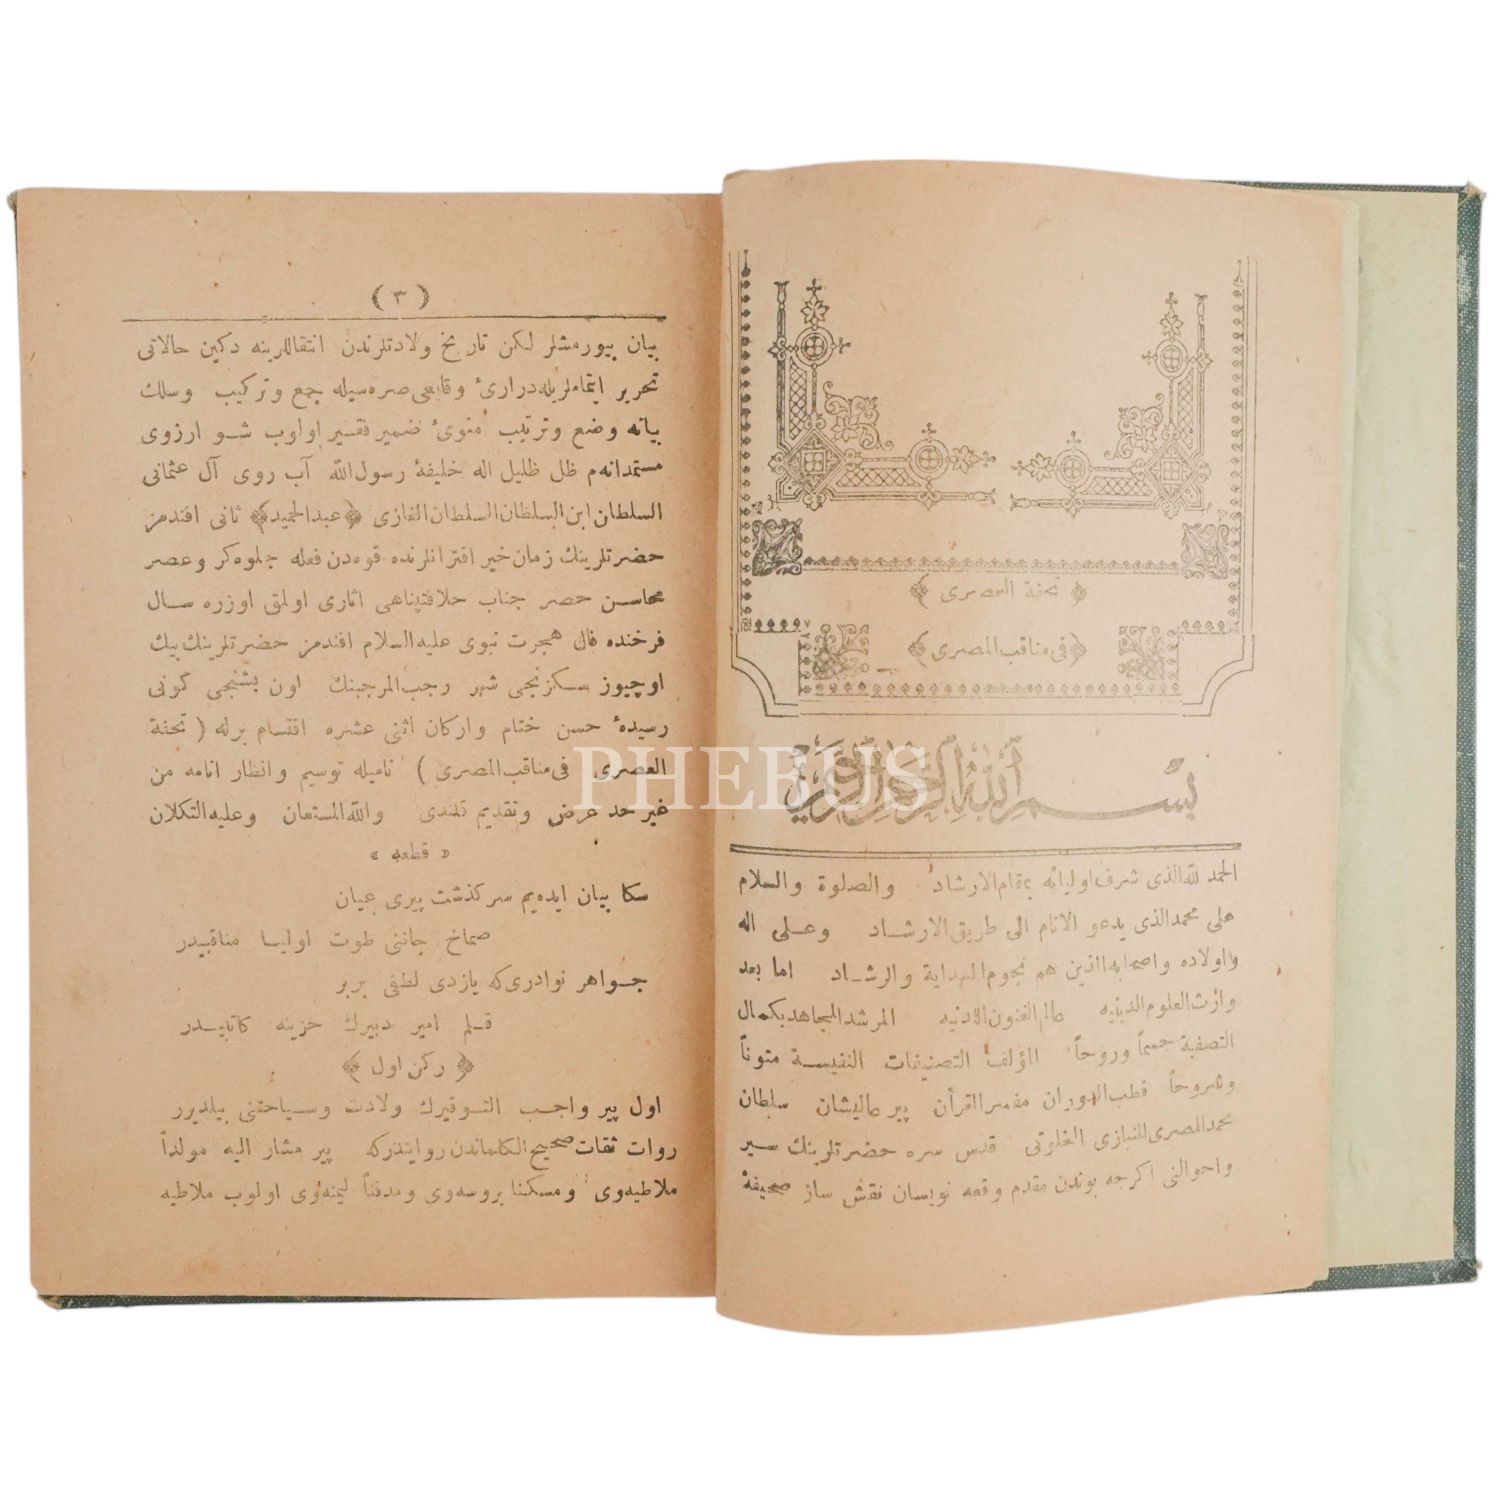 ﴿ تحفة العصرى ﴾
﴿ فى مناقب المصرى ﴾
بســم الله الرحمن الرحيم
الحمد لله الذى شرف اوليائه بمقام الارشاد والصلوة والسلام
على محمد الذى يدعو الانام الى طريق الارشــاد وعــلى اله
واولاده واصحابه الذين هم نجوم الهداية والرشــاد اما بعد
وارث العلوم الدينيه عالم الفنون اللدنيه المرشد المجاهد بكمال
التصفية جسماً وروحاً المؤلف التصنيفات النفيســة متوناً
وشروحاً قطب الدوران مفسر القرأن پير عاليشان سلطان
محمد المصرى النيازى الخلوتى قدس سره حضرتلرينك سير
واحوالنى اكرچه بوندن مقدم وقعه نويسان نقش ساز صحيفهٔ
( ٣ )
بيان بيورمشلر ليكن تاريخ ولادتلرندن انتقاللرينه دكين حالاتى
تحرير ايتماملريله درارىٔ وقايعى صره سيله جمع وتركيب وسلك
بيانه وضع وترتيب منوىٔ ضمير فقــير اولوب شــو ارزوى
مستمدانه م ظل ظليل اله خليفهٔ رسول الله آب روى آل عثمانى
السلطان ابن السلطان السلطان الغازى ﴿ عبدالحميد ﴾ ثانى افندمز
حضرتلرينك زمان خير اقترانلرنده قوه دن فعله جلوه كر وعصر
محاســن حصر جناب خلافتپناهى اثارى اولمق اوزره ســال
فرخنده فال هجرت نبوى عليه السلام افندمز حضرتلرينك بيك
اوچيوز ســكزنجى شهر رجب المرجبنك اون بشنجى كونى
رسيدهٔ حسن ختام واركان اثنى عشره اقتسام برله ( تحفة
العصرى فى مناقب المصرى ) ناميله توسيم وانظار انامه من
غير حد عرض وتقديم قلندى والله المستعان وعليه التكلان
« قطعه »
سكا بيان ايده يم سركذشت پيرى عيان
صماخ جاننى طوت اوليــا مناقبيدر
جــواهر نوادرى كه يازدى لطفى بربر
قــلم امير دبيرك خزينه كاتبيــدر
﴿ ركن اول ﴾
اول پير واجــب التــوقيرك ولادت وســياحتنى بيلديرر
روات ثقات صحيح الكلماتدن روايتدركه پير مشار اليه مولداً
ملاطيه وى ومسكنا بروسه وى ومدفناً ليمنه وى اولوب ملاطيه
PHEBUS